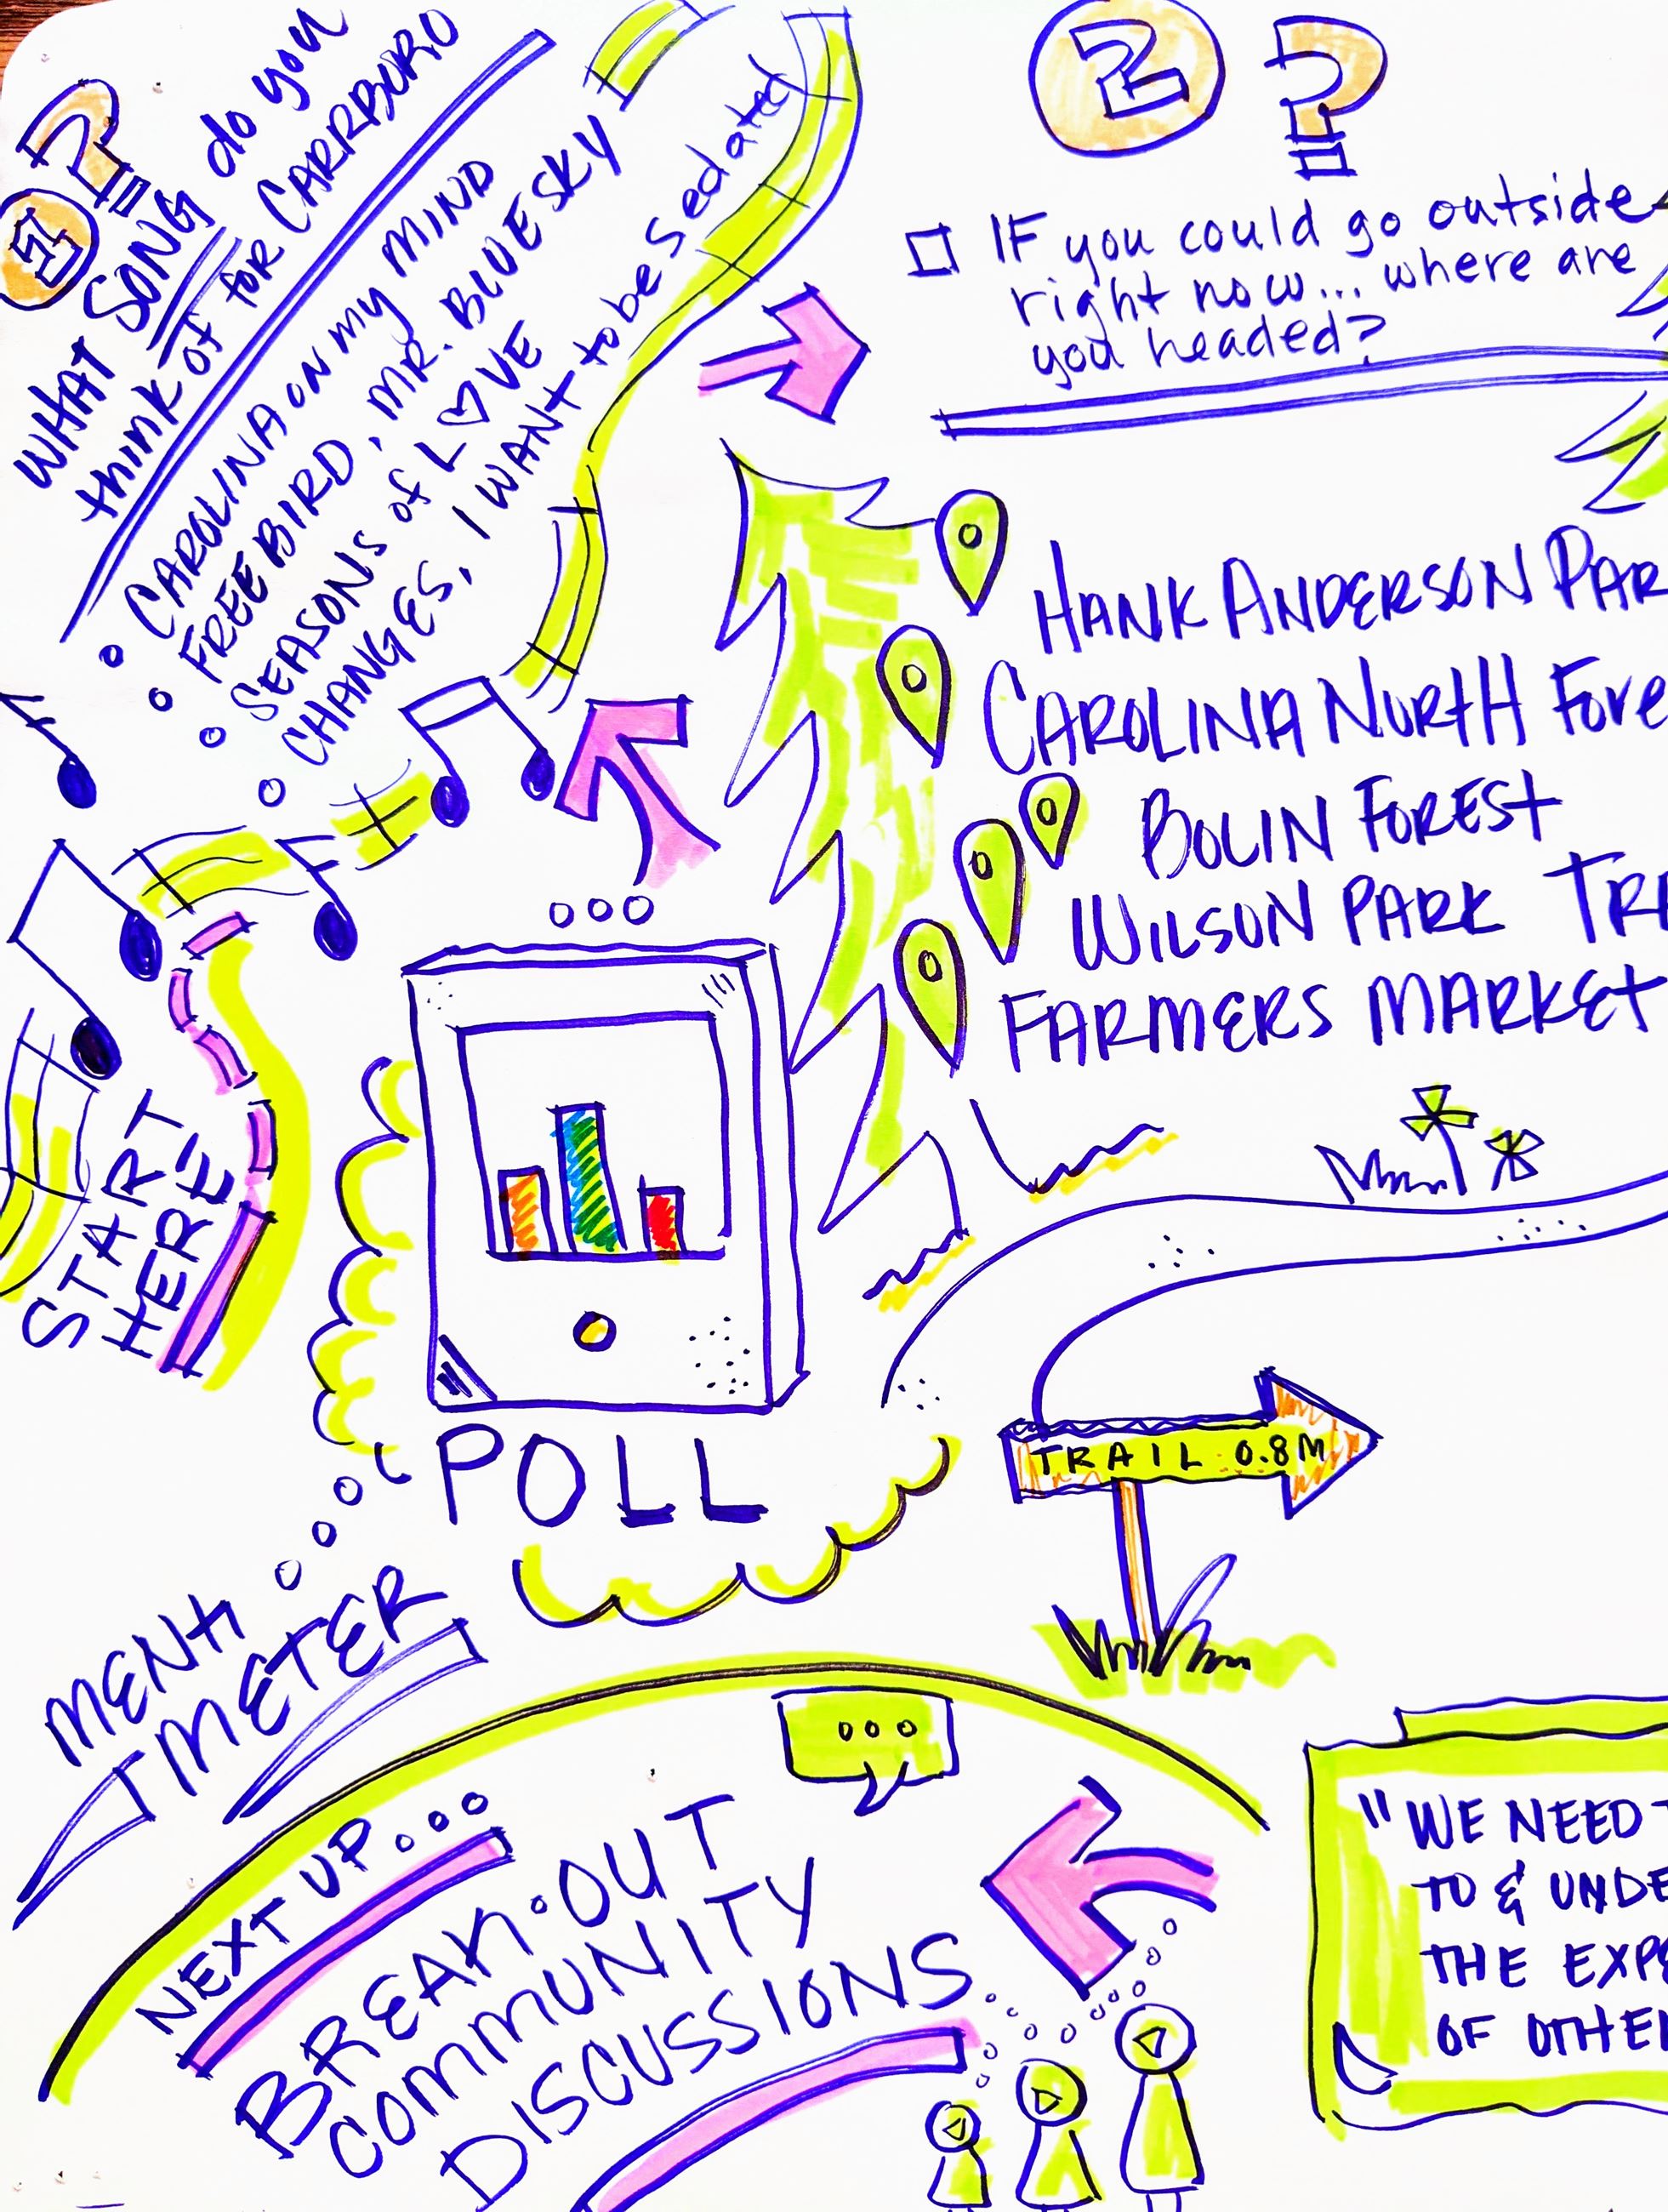 1?
WHAT SONG do you
think of for CARRBORO
CAROLINA ON MY MIND
FREEBIRD, MR. BLUE SKY
SEASONS of LOVE
CHANGES, I WANT to be Sedated
2 ?
IF you could go outside
right now... where are
you headed?
HANK ANDERSON PAR
CAROLINA NORTH Fore
BOLIN FOREST
WILSON PARK TRA
FARMERS MARKET
START
HERE
POLL
TRAIL 0.8M
MENTI
TIMETER
NEXT UP...
BREAK·OUT
COMMUNITY
DISCUSSIONS
"WE NEED T
TO & UNDE
THE EXPE
OF OTHE